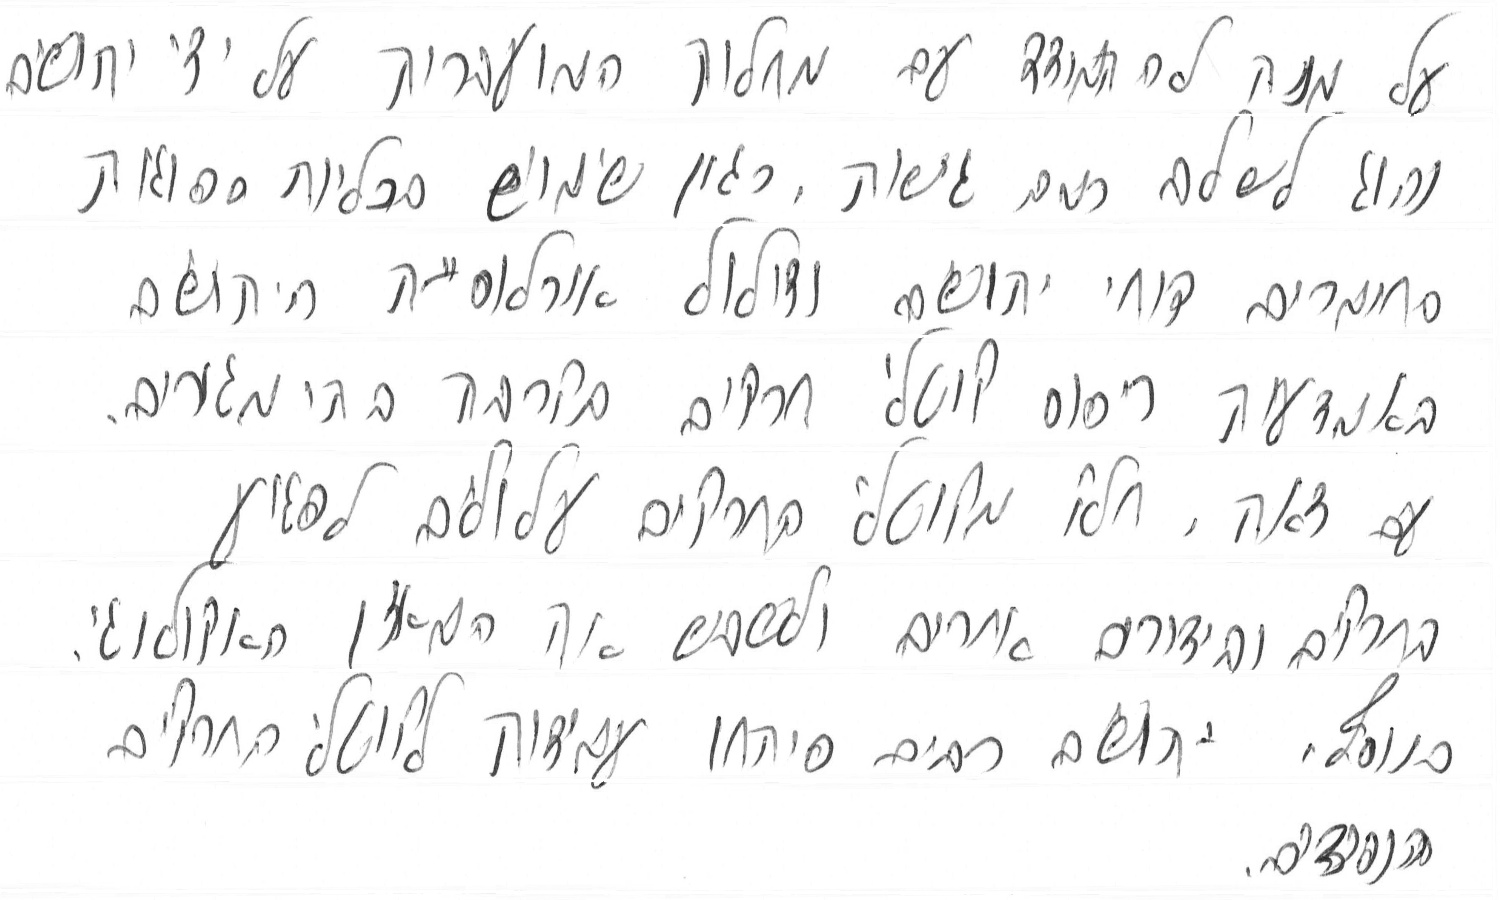 על מנת להתמודד עם מחלות המועברות על ידי יתושים
נהוג לשלב כמה גישות, כגון שימוש בכליות ספוגות
בחומרים דוחי יתושים ודילול אוכלוסיית היתושים
באמצעות ריסוס קוטלי חרקים בקרבת בתי מגורים.
עם זאת, חלק מקוטלי החרקים עלולים לפגוע
בחרקים ובי צורים אחרים ולשבש את המאזן האקולוגי.
בנוסף, יתושים רבים פיתחו עמידות לקוטלי החרקים
הנפוצים.